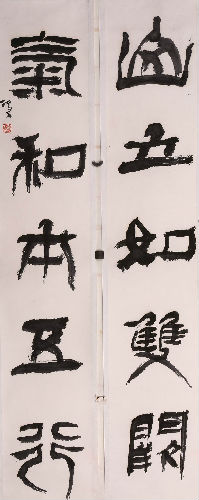 山立如雙闕
氣和本五行